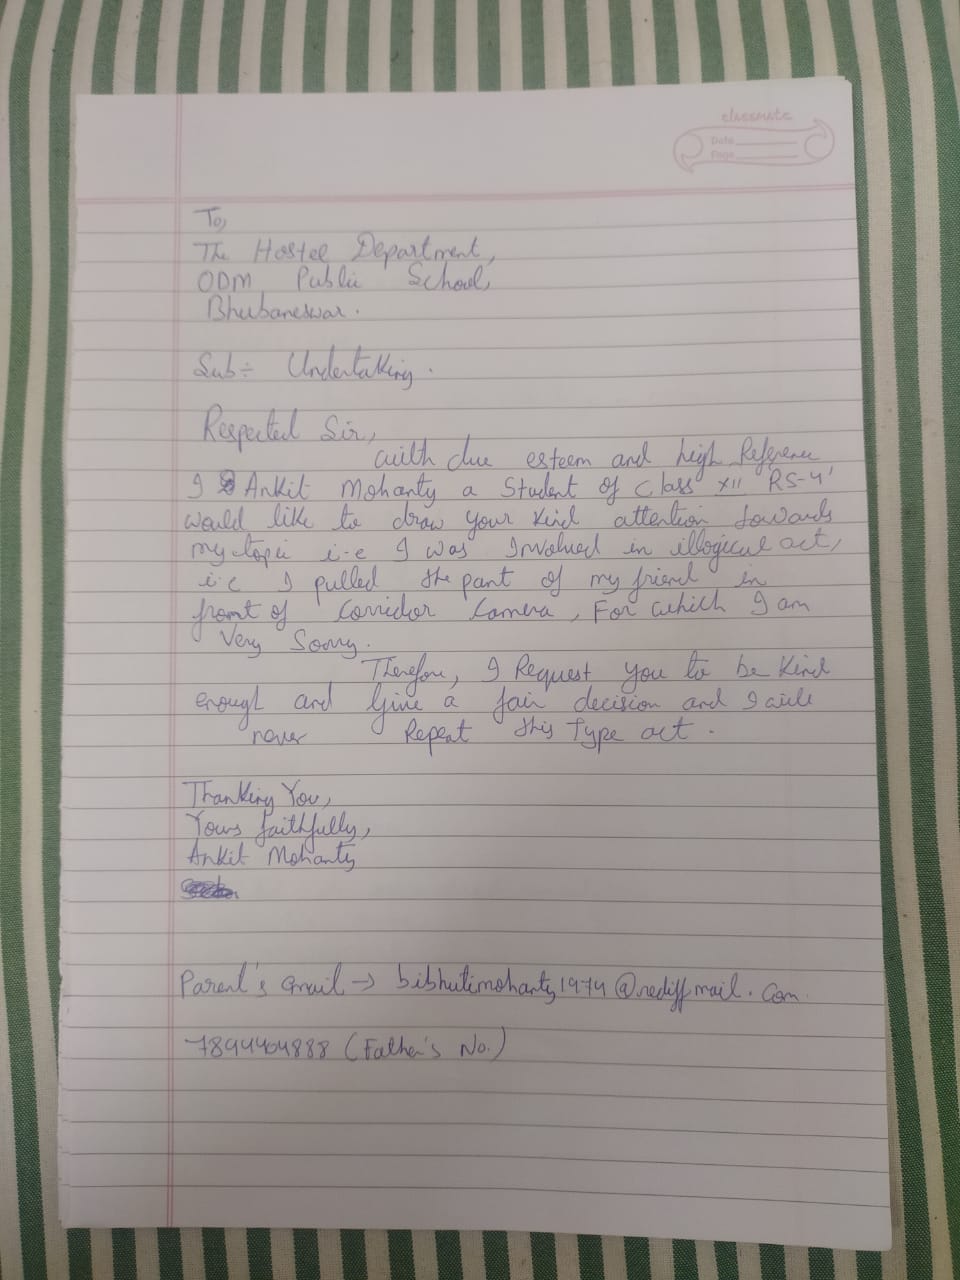 classmate
Date
Page
To,
The Hostel Department,
ODM Public School,
Bhubaneswar.
Sub:- Undertaking.
Respected Sir,
with due esteem and high Reference
I Ankit Mohanty a Student of Class XII 'RS-4'
would like to draw your kind attention towards
my topic i.e I was Involved in illogical act,
i.e I pulled the pant of my friend in
front of Corridor Camera, For which I am
Very Sorry.
Therefore, I Request you to be kind
enough and Give a fair decision and I will
never Repeat this Type act.
Thanking You,
Yours faithfully,
Ankit Mohanty
Parent's Gmail → bibhutimohanty1974@rediffmail.com
7894404888 (Father's No.)